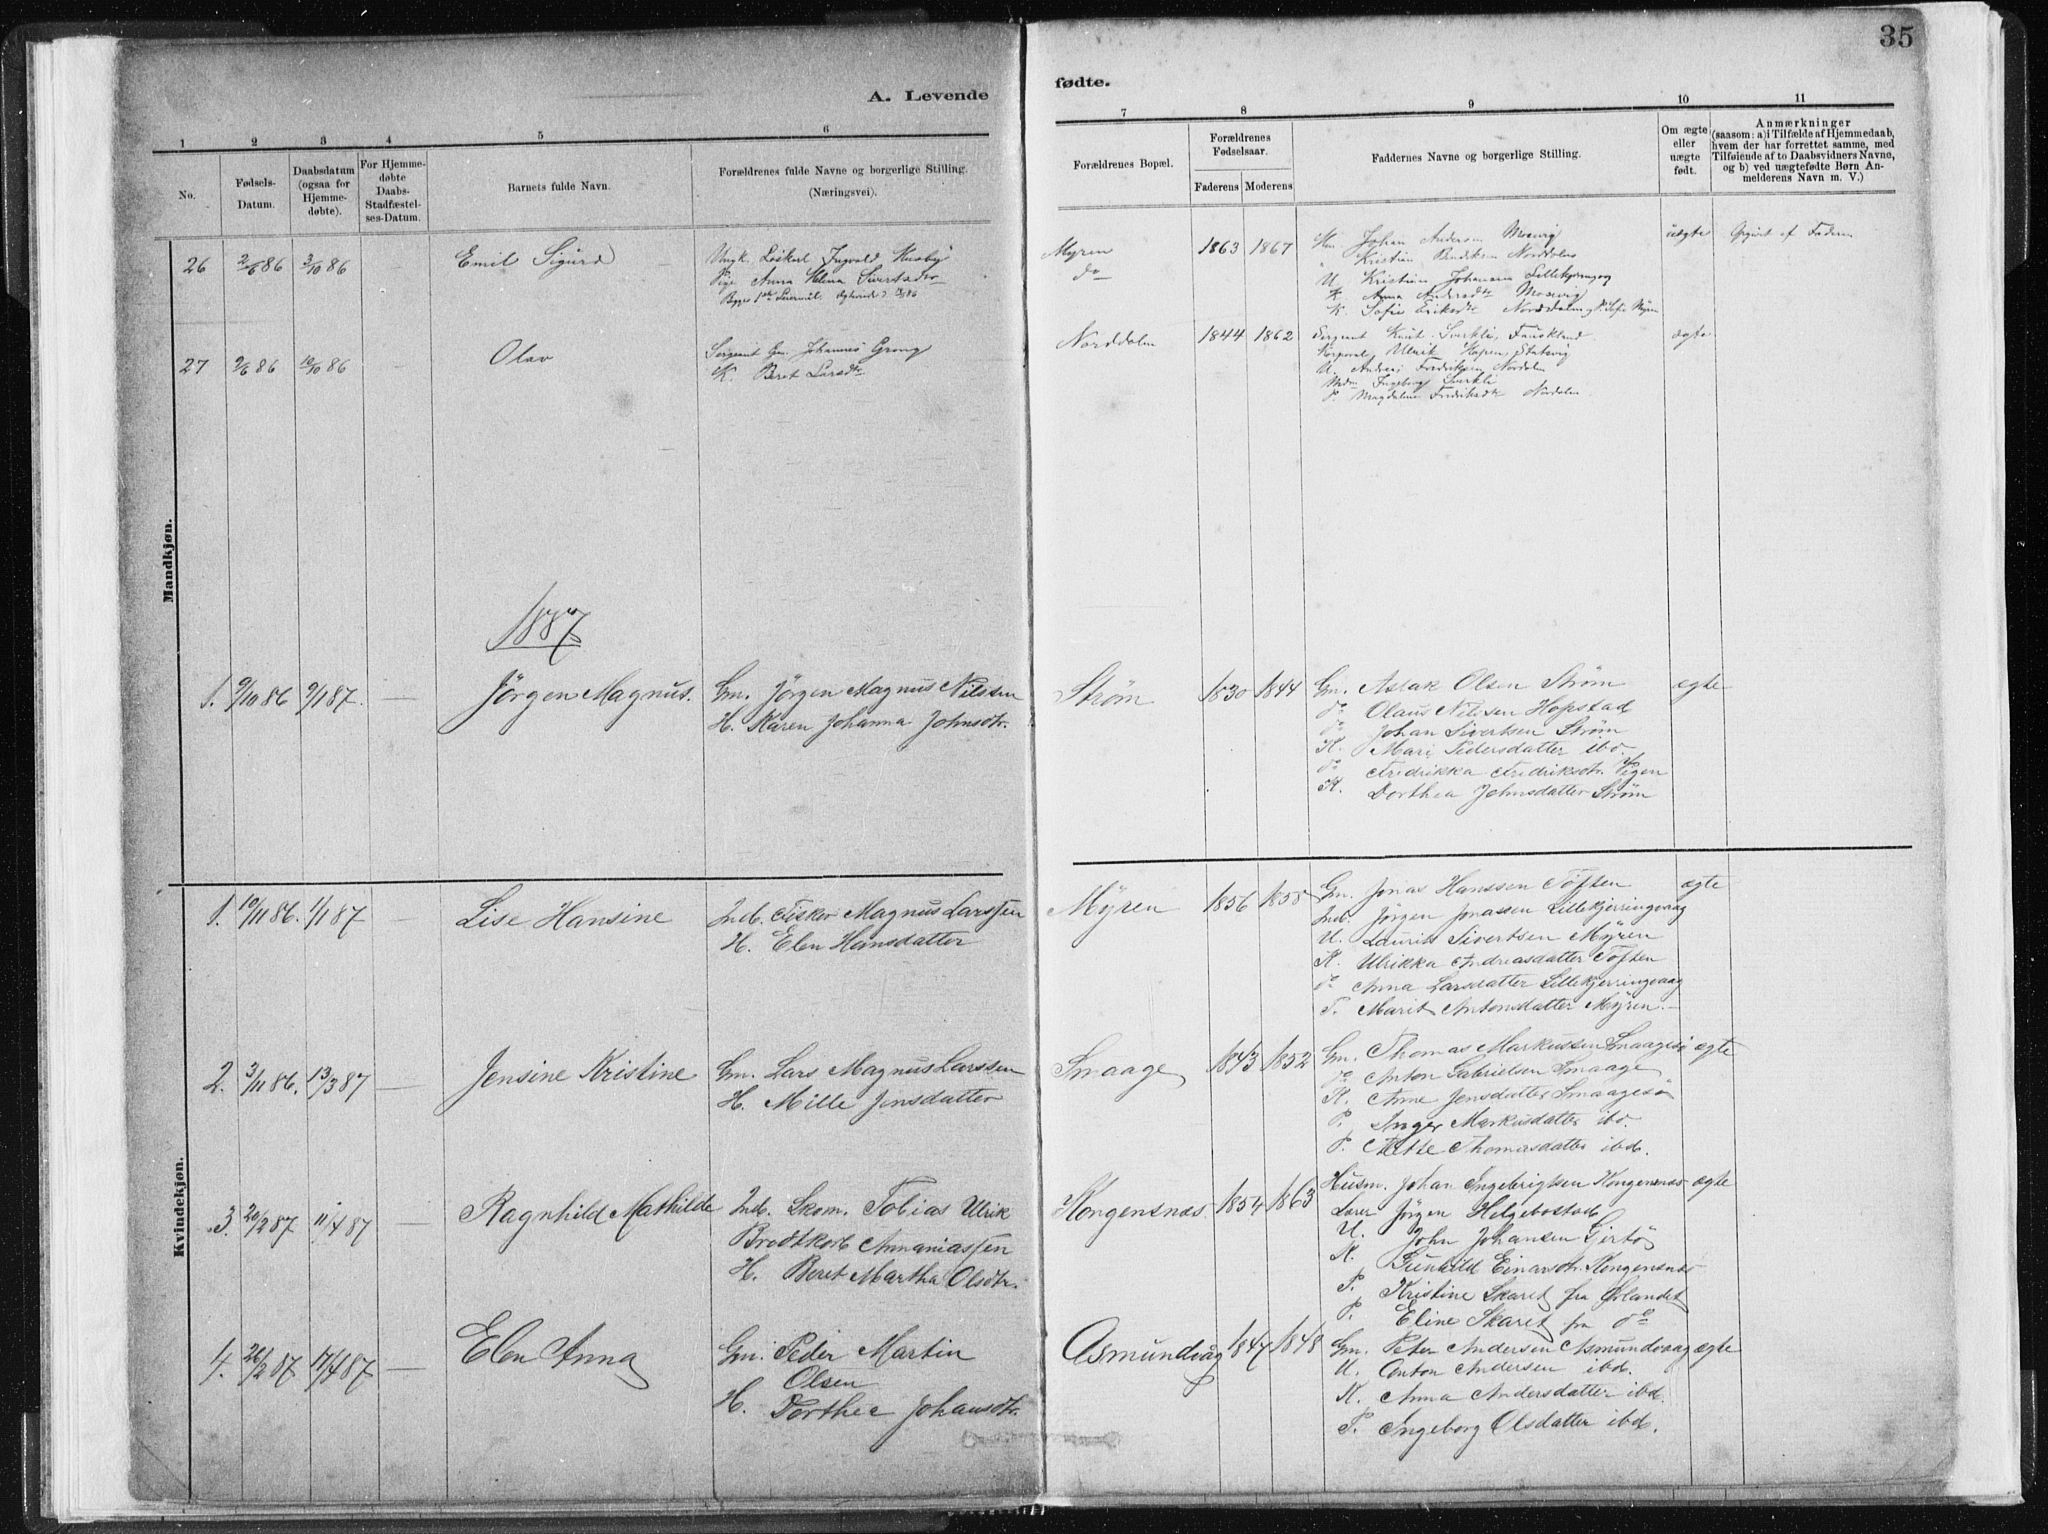 35
A. Levende fødte.
1 2 3 4 5 6 7 8 9 10 11
No.
Fødsels-Datum.
Daabsdatum (ogsaa for Hjemmedøbte).
For Hjemmedøbte Daabs-Stadfæstelses-Datum.
Barnets fulde Navn.
Forældrenes fulde Navne og borgerlige Stilling.
(Næringsvei).
Forældrenes Bopæl.
Forældrenes Fødselsaar.
Faderens Moderens
Faddernes Navne og borgerlige Stilling.
Om ægte eller uægte født.
Anmærkninger
(saasom: a) i Tilfælde af Hjemmedaab,
hvem der har forrettet samme, med
Tilføiende af to Daabsvidners Navne,
og b) ved uægtefødte Børn Anmelderens Navn m. V.)
Mandkjøn.
26 2/6 86 3/10 86 — Emil Sigurd
Ungk. Løskarl Ingvald Husby
Pige Anna Helena Sivertsdr
Myren
do
1863 1867
Gm Johan Andersen Mosvig
" Kristian Bendiksen Norddalm
U. Kristian Johansen Lillekjerringvog
K. Anna Andersdtr Mosevig
K. Sofie Eriksdtr Norddalm
uægte
Opgivet af Faderen
27 9/6 86 10/10 86 — Olav
Sergeant Gm. Johannes Grong
K. Beret Larsdtr
Norddalm
1844 1862
Sergeant Knut Sverkli
Korporal Ulrik Hopen, Statsvig
U. Andreas Fredriksen Nordalm
Mdm Ingeborg Sverkli
P. Magdalene Fredriksdtr Nordalm
ægte
1887
1. 9/10 86 9/1 87. — Jörgen Magnus.
Gm. Jörgen Magnus Nilssen
H. Karen Johanna Johnsdtr.
Strøm
1830 1844
Gm. Aslak Olsen Strøm
do Olaus Nilsen Hopstad
do Johan Sivertsen Strøm
K. Mari Pedersdatter ibd.
do Fredrikka Fredriksdtr. Vigen
K. Dorthea Johnsdatter Strøm
ægte
Kvindekjøn.
1. 10/11 86. 1/1 87 — Lise Hansine
Ind. Fisker Magnus Larssen
H. Elen Hansdatter
Myren
1856 1858
Gm. Jonas Hanssen Tøften
Ind. Jørgen Jonassen Lillekjerringvaag
U. Laurits Sivertsen Myren
K. Ulrikka Andreasdatter Tøften
do Anna Larsdatter Lillekjerringvaag
P. Marit Antonsdatter Myren.
ægte
2. 3/11 86. 13/3 87 — Jensine Kristine
Gm. Lars Magnus Larssen
H. Mille Jensdatter
Smaage
1843 1852
Gm. Thomas Markussen Smaagesö
do Anton Gabrielsen Smaage
K. Anne Jensdatter Smaagesö
P. Inger Markusdatter ibd.
P. Mette Thomasdatter ibd.
ægte
3. 20/2 87 11/4 87 — Ragnhild Mathilde
Ind. Skom. Tobias Ulrik
Brodtkorb Annaniassen
H. Beret Martha Olsdtr.
Kongensnæs
1854 1863
Husm. Johan Ingebrigtsen Kongensnæs
Lærer Jörgen Helgebostad
U. John Johansen Girtö
K. Gunhild Einarsdtr. Kongensnæs
P. Kristine Skaret fra Ørlandet
P. Eline Skaret fra do
ægte
4. 26/2 87 17/4 87 — Elen Anna
Gm. Peder Martin
Olsen
H. Dorthea Johansdtr.
Asmundvåg
1847 1848
Gm. Peter Andersen Asmundvaag
U. Anton Andersen ibd.
K. Anna Andersdatter ibd
P. Ingeborg Olsdatter ibd.
ægte